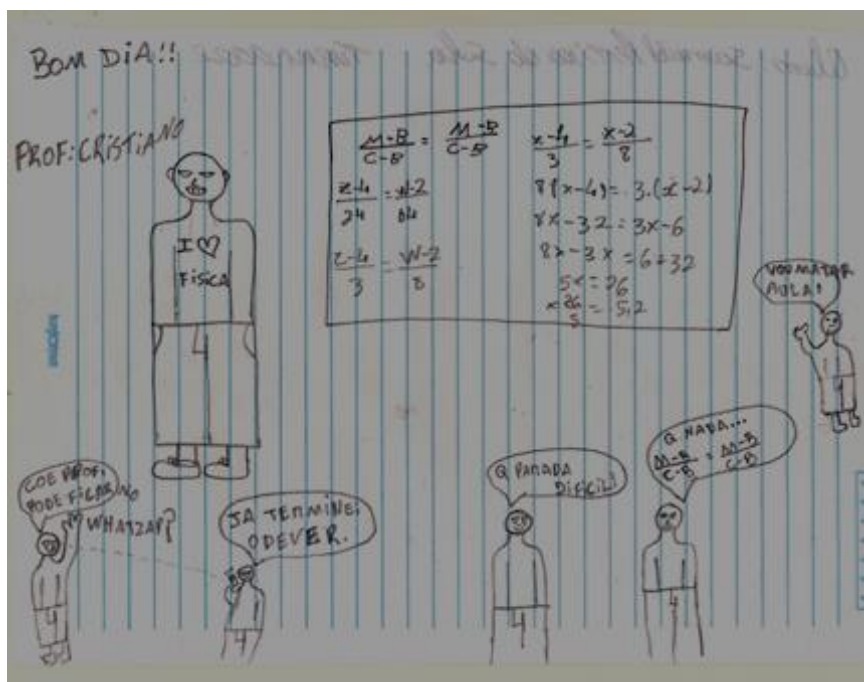 BOM DIA!!
PROF: CRISTIANO
I ♡
FÍSICA
M-B/C-B = M-B/C-B
x-4/24 = W-2/64
C-4/3 = W-2/8
x-4/3 = x-2/8
8(x-4) = 3.(x-2)
8x-32 = 3x-6
8x-3x = 6=32
5x = 26
x 26/5 = 5,2
VOU MATAR
AULA!
COE PROF.
PODE FICAR NO
WHATZAP?
JA TERMINEI
O DEVER.
Q PARADA
DIFICIL!
Q NADA...
M-B/C-B = M-B/C-B